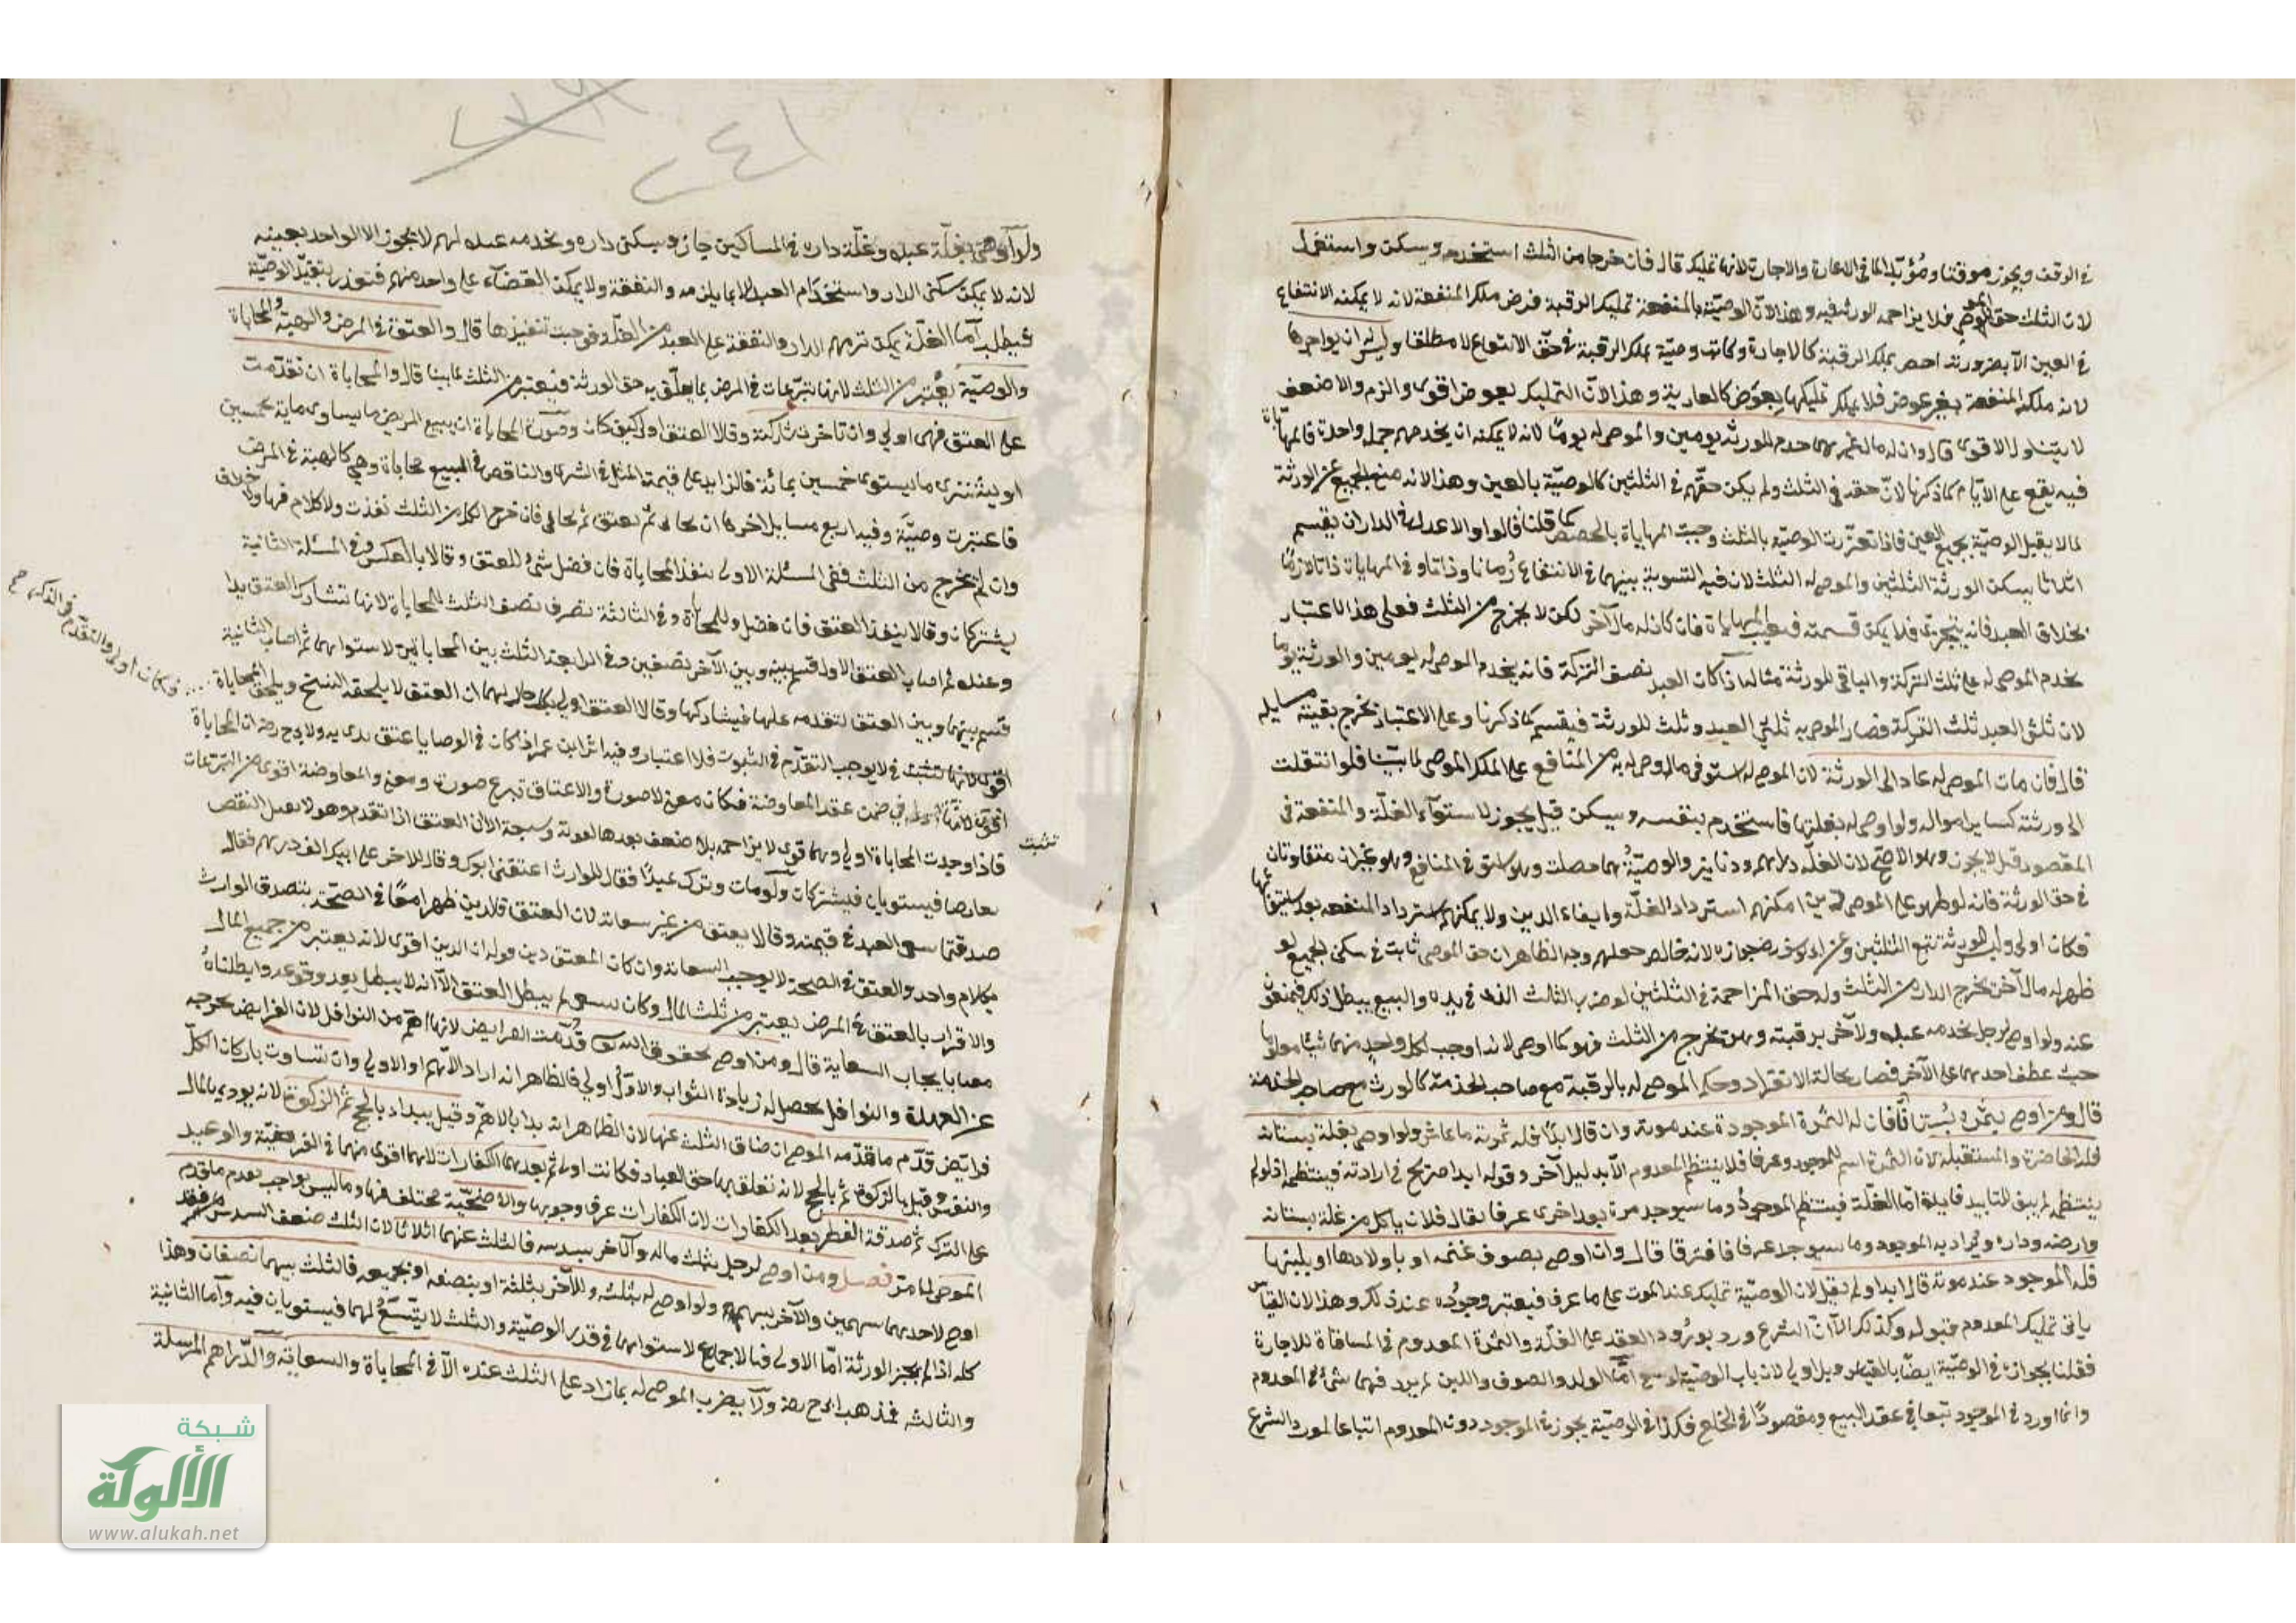 في الوقف ويجوز موقتا ومؤبدا كما في الاعارة والاجارة لانها تمليك قال فان خرجا من الثلث استخدم وسكن واستغل
لان الثلث حق الموصي فلا يزاحمه الورثة فيه وهذا لان الوصيّة بالمنفعة تمليك الرقبة فرض ملك المنفعة لانه لا يمكنه الانتفاع
في العين الا بضرورته احص بملك الرقبة كالاجارة وكانت وصيّة بملك الرقبة في حق الانتفاع لا مطلقا وليس له ان يواجرها
لانه ملك المنفعة بغير عوض فلا يملك تمليكها بعوض كالعارية وهذا لان التمليك بعوض اقوى والزم والاضعف
لا يتناول الاقوى قال وان لم مال غيرهما خدم الورثة يومين والموصى له يوما لانه لا يمكنه ان يخدمهم جملة واحدة فالمهاياة
فيه يقع على الايام كما ذكرنا لان حقه في الثلث ولم يكن حقهم في الثلثين كالوصيّة بالعين وهذا لانه منع الجميع عن الورثة
لما لا يقبل الوصيّة بجميع العين فاذا تعذّرت الوصيّة بالثلث وجبت المهاياة بالحصص كما قلنا قالوا والاعدل في الدار ان يقسم
اثلاثا يسكن الورثة الثلثين والموصى له الثلث لان فيه التسوية بينهما في الانتفاع زمانا وذاتا وفي المهاياة ذاتا لازمانا
بخلاف العبد فانه لا يتجزى فلا يمكن قسمته فيجب المهاياة فان كان له مال آخر لكن لا يخرج من الثلث فعلى هذا الاعتبار
يخدم الموصى له على ثلث التركة والباقي للورثة مثاله اذا كان العبد نصف التركة فانه يخدم الموصى له يومين والورثة يوما
لان ثلثي العبد ثلث التركة فصار الموصى به ثلثي العبد وثلث للورثة فيقسم كما ذكرنا وعلى الاعتبار تخرج بقيته مسايله
قال فان مات الموصى له عاد الى الورثة لان الموصى له استوفى ما اوصى له به من المنافع على الملك الموصى لما بيّنا فلو انتقلت
الى ورثته كساير امواله ولو اوصى له بغلتها فاستخدم بنفسه وسكن قيل يجوز لاستواء الغلّة والمنفعة في
المقصود قيل لا يجوز وهو الاصح لان الغلة دراهم ودنانير والوصيّة بهما حصلت وهو استوفى المنافع وهو غيران متفاوتان
في حق الورثة فانه لو ظهر على الموصى دين امكنهم استرداد الغلّة وايفاء الدين ولا يمكنهم استرداد المنفعه بعد استيفائها
فكان اولى وليس للورثة بيع الثلثين وعن ابي يوسف رضه جوازه لانه خالص حقهم وجه الظاهر ان حق الموصى ثابت في سكنى الجميع لو
ظهر له مال آخر يخرج الدار من الثلث وله حق المزاحمة في الثلثين لو خرب الثلث الذى في يده والبيع يبطل ذلك فيمنعون
عنه ولو اوصى لرجل بخدمة عبده ولآخر برقبته وهو يخرج من الثلث فهو كما اوصى لانه اوجب لكل واحد منهما شيئا معلوما
حيث عطف احدهما على الآخر فصار بحالة الانفراد وحكم الموصى له بالرقبة مع صاحب الخدمة كالورث مع صاحب الخدمة
قال ومن اوصى بثمرة بستان فمات فان له الثمرة الموجودة عند موته وان قال ابدًا فله ثمرته ما عاش ولو اوصى بغلة بستانه
فله الحاضرة والمستقبلة لان الثمرة اسم للموجود عرفا فلا ينتظم المعدوم الا بدليل آخر وقوله ابدا صريح في ارادته فينتظمه اذ لو لم
ينتظمه لم يبق للتابيد فايدة اما الغلّة فينتظم الموجود وما سيوجد مرة بعد اخرى عرفا يقال فلان ياكل من غلة بستانه
وارضه وداره ويراد به الموجود وما سيوجد عرفا فافترقا قال وان اوصى بصوف غنمه او باولادها او بلبنها
فله الموجود عند موته قال ابدا ولم يقل لان الوصيّة تمليك عند الموت على ما عرف فيعتبر وجوده عند ذلك وهذا لان القياس
يابى تمليك المعدوم قبوله وكذلك الا ان الشرع ورد بورود العقد على الغلّة والثمرة المعدوم في المساقاة للاجارة
فقلنا بجوازه في الوصيّة ايضًا بالقياس وبل اولى لان باب الوصيّة اوسع امّا الولد والصوف واللبن لم يرد فيهما شئ في المعدوم
وانما ورد في الموجود تبعا في عقد البيع ومقصودًا في الخلع فكذا في الوصيّة يجوز في الموجود دون المعدوم اتباعا لمورد الشرع
٢٤١
ولو اوصى بغلّة عبده وغلّة داره في المساكين جاز وبسكنى داره وبخدمة عبده لهم لا يجوز الا الواحد بعينه
لانه لا يمكن سكنى الدار واستخدام العبد الا بما يلزمه والنفقة ولا يمكن القضاء على واحد منهم فتعذر تنفيذ الوصيّة
فبطل امّا الغلّة يمكن ترميم الدار والنفقة على العبد من الغلّة فوجبت تنفيذها قال والعتق في المرض والهبة والمحاباة
والوصيّة يعتبر من الثلث لانها تبرّعات في المرض بما يعلّق به حق الورثة فيعتبر من الثلث لما بينا قال والمحاباة ان تقدّمت
على العتق فهى اولى وان تاخرت شاركته وقالا العتق اولى كيف كان وصورة المحاباة ان يبيع المريض ما يساوى ماية بخمسين
او يشترى ما يستوى خمسين بمائة فالزايد على قيمة المثل في الشرى والناقص في البيع محاباة وهي كالهبة في المرض
فاعتبرت وصيّة وفيه اربع مسايل اخرها ان يحابى ثم يعتق ثم يحابي فان خرج الكل من الثلث نفذت ولا كلام فيها ولا خلاف
وان لم يخرج من الثلث ففي المسئلة الاولى ينفذ المحاباة فان فضل شئ للعتق وقالا بالعكس وفي المسئلة الثانية
يشتركان وقالا ينفذ العتق فان فضل وللمحاباة وفي الثالثة تصرف نصف الثلث للمحاباة لانها تشارك العتق بدا
وعنده ثم اصاب العتق الاول قسم بينه وبين الآخر نصفين وفي الرابعة الثلث بين المحاباتين لاستوايهما ثم اصاب الثانية
قسم بينها وبين العتق لتقدمه عليها فيشاركها وقالا العتق اولى بكل حال لهما ان العتق لا يلحقه الفسخ ويلحق المحاباة
فكان اولى والتقدم في الذكر
اقوى لا يوجب التقدّم في الثبوت فلا اعتبار وفيه اثر ابن عمر اذا كان في الوصايا عتق بدى به ولابي ح رضه ان المحاباة
تثبت
اقوى لانها في ضمن عقد المعاوضة فكان معنى لا صورة والاعتاق تبرع صورة ومعنى والمعاوضة اقوى من التبرعات
فاذا وجدت المحاباة اولى وهما قوى لا يزاحمه بلا ضعف بعدها الا ان العتق اذا تقدم وهو لا يقبل النقص
تعارضا فيستويان فيشتركان ولو مات وترك عبدًا فقال للوارث اعتقني ابوك وقال للاخر على ابيك الف درهم فقال
صدقتما سعى العبد في قيمته وقالا يعتق من غير سعاية لان العتق والدين ظهرا معًا في الصحّة بتصدق الوارث
بكلام واحد والعتق في الصحة لا يوجب السعاية وان كان المعتق دين وله ان الدين اقوى لانه يعتبر من جميع المال
والاقرار بالعتق في المرض يعتبر من ثلث المال وكان يسعى لم يبطل العتق الا انه لا يبطل بعد وقوعه وابطلناه
معنا بايجاب السعاية قال ومن اوصى بحقوق الله تعالى قدّمت الفرايض لانها اهم من النوافل لان الفرايض تخرجه
عن العهدة والنوافل يحصل له زيادة الثواب والاول اولى فالظاهر انه اراد الاهم او الاولى وان تساوت باركان الكلّ
فرايض قدّم ما قدّمه الموصى ان ضاق الثلث عنها لان الظاهر انه بدا بالاهم وقيل يبدا بالحج ثم الزكوة لانه يودى بالمال
والنفس وقيل بالزكوة ثم بالحج لانه تعلق بها حق العباد فكانت اولى ثم بعدهما الكفارات لانهما اقوى منهما في الفرضيّة والوعيد
على الترك ثم صدقة الفطر بعد الكفارات لان الكفارات عرف وجوبها والاضحيّة مختلف فيها وما ليس بواجب يقدم ما قدم
الموصى لما مرّ فصل ومن اوصى لرجل بثلث ماله ولآخر بسدسه فالثلث عنهما اثلاثا لان الثلث ضعف السدس
اوصى لاحدهما سهمين والآخر بسهم ولو اوصى له بثلثه وللآخر بثلثة او بنصفه او بجميعه فالثلث بينهما نصفان وهذا
كله اذا لم يجز الورثة امّا الاولى فبالاجماع لاستوايهما في قدر الوصيّة والثلث لا يتّسع لهما فيستويان فيه وامّا الثانية
والثالثة فمذهب ابي ح رضه ولا يضرب الموصى له بما زاد على الثلث عنده الا في المحاباة والسعاية والدّراهم المرسلة
شبكة
الألوكة
www.alukah.net